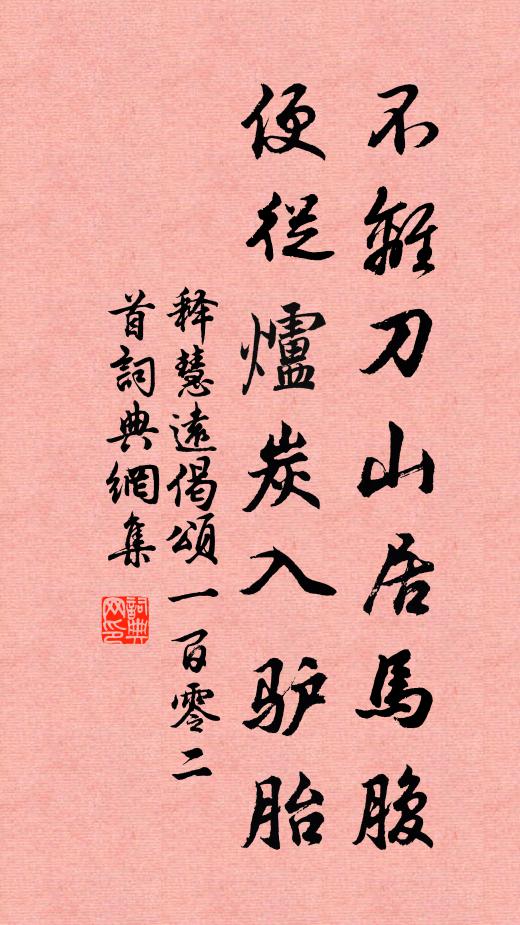 不離刀山居馬腹
便從爐炭入驴胎
释慧遠偈頌一百零二
首詞典網集
詞典
网印